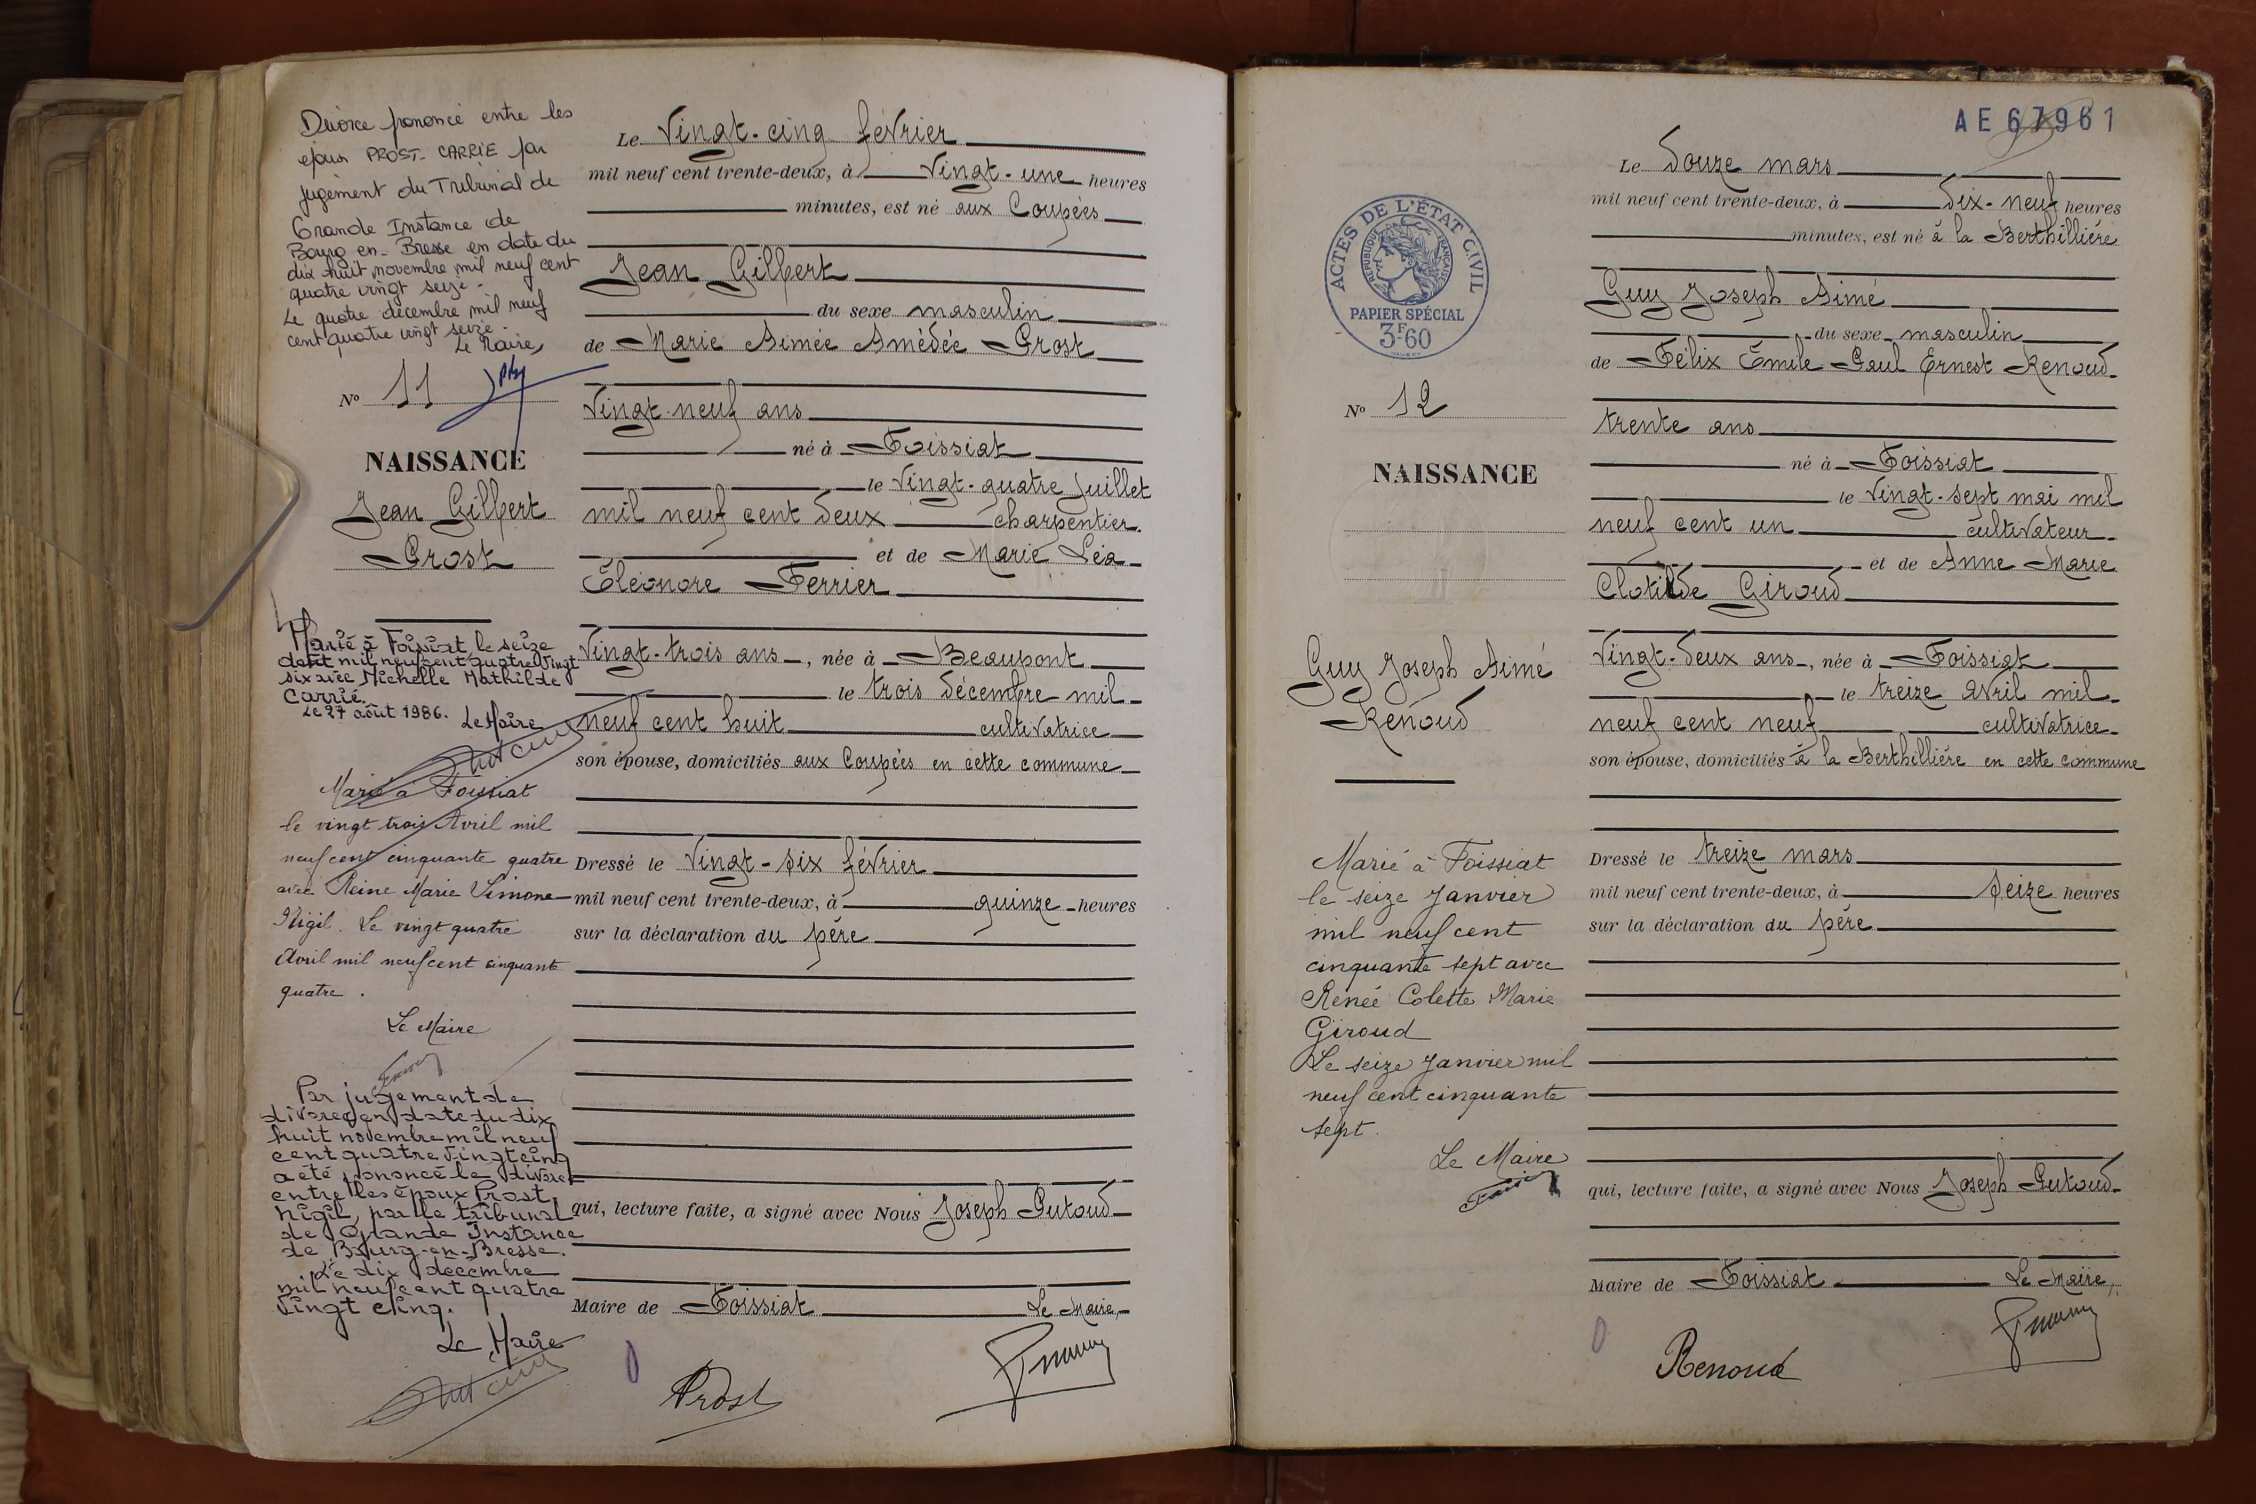 Divorce prononcé entre les
époux PROST-CARRIE par
jugement du Tribunal de
Grande Instance de
Bourg en-Bresse en date du
dix huit novembre mil neuf cent
quatre vingt seize.
Le quatre décembre mil neuf
cent quatre vingt seize.
Le Maire,
N° 11
NAISSANCE
Jean Gilbert
Prost
Marié à Foissiat le seize
août mil neuf cent quatre vingt
six avec Michelle Mathilde
Carrié.
Le 27 août 1986. Le Maire
Marié à Foissiat
le vingt trois Avril mil
neuf cent cinquante quatre
avec Reine Marie Simone
Nigil. Le vingt quatre
Avril mil neuf cent cinquante
quatre.
Le Maire
Par jugement de
divorce en date du dix
huit novembre mil neuf
cent quatre vingt cinq
a été prononcé le divorce
entre les époux Prost,
Nigil, par le tribunal
de Grande Instance
de Bourg-en-Bresse.
Le dix décembre
mil neuf cent quatre
vingt cinq.
Le Maire
Le Vingt-cinq février
mil neuf cent trente-deux, à Vingt-une heures
minutes, est né aux Coupées
Jean Gilbert
du sexe masculin
de Marie Aimée Amédée Prost
Vingt-neuf ans
né à Foissiat
le Vingt-quatre juillet
mil neuf cent deux charpentier.
et de Marie Léa
Eléonore Ferrier
Vingt-trois ans, née à Beaupont
le trois décembre mil
neuf cent huit cultivatrice
son épouse, domiciliés aux Coupées en cette commune
Dressé le Vingt-six février
mil neuf cent trente-deux, à quinze heures
sur la déclaration du père
qui, lecture faite, a signé avec Nous Joseph Putoud
Maire de Foissiat Le Maire,
Prost
AE 67961
ACTES DE L'ÉTAT CIVIL
RÉPUBLIQUE FRANÇAISE
PAPIER SPÉCIAL
3F60
N° 12
NAISSANCE
Guy Joseph Aimé
Renoud
Marié à Foissiat
le seize Janvier
mil neuf cent
cinquante sept avec
Renée Colette Marie
Giroud
Le seize Janvier mil
neuf cent cinquante
sept.
Le Maire
Le douze mars
mil neuf cent trente-deux, à dix-neuf heures
minutes, est né à la Berthillière
Guy Joseph Aimé
du sexe masculin
de Félix Emile Paul Ernest Renoud
trente ans
né à Foissiat
le Vingt-sept mai mil
neuf cent un cultivateur
et de Anne Marie
Clotilde Giroud
Vingt-deux ans, née à Foissiat
le treize avril mil
neuf cent neuf cultivatrice
son épouse, domiciliés à la Berthillière en cette commune
Dressé le treize mars
mil neuf cent trente-deux, à seize heures
sur la déclaration du père
qui, lecture faite, a signé avec Nous Joseph Putoud
Maire de Foissiat Le Maire,
Renoud